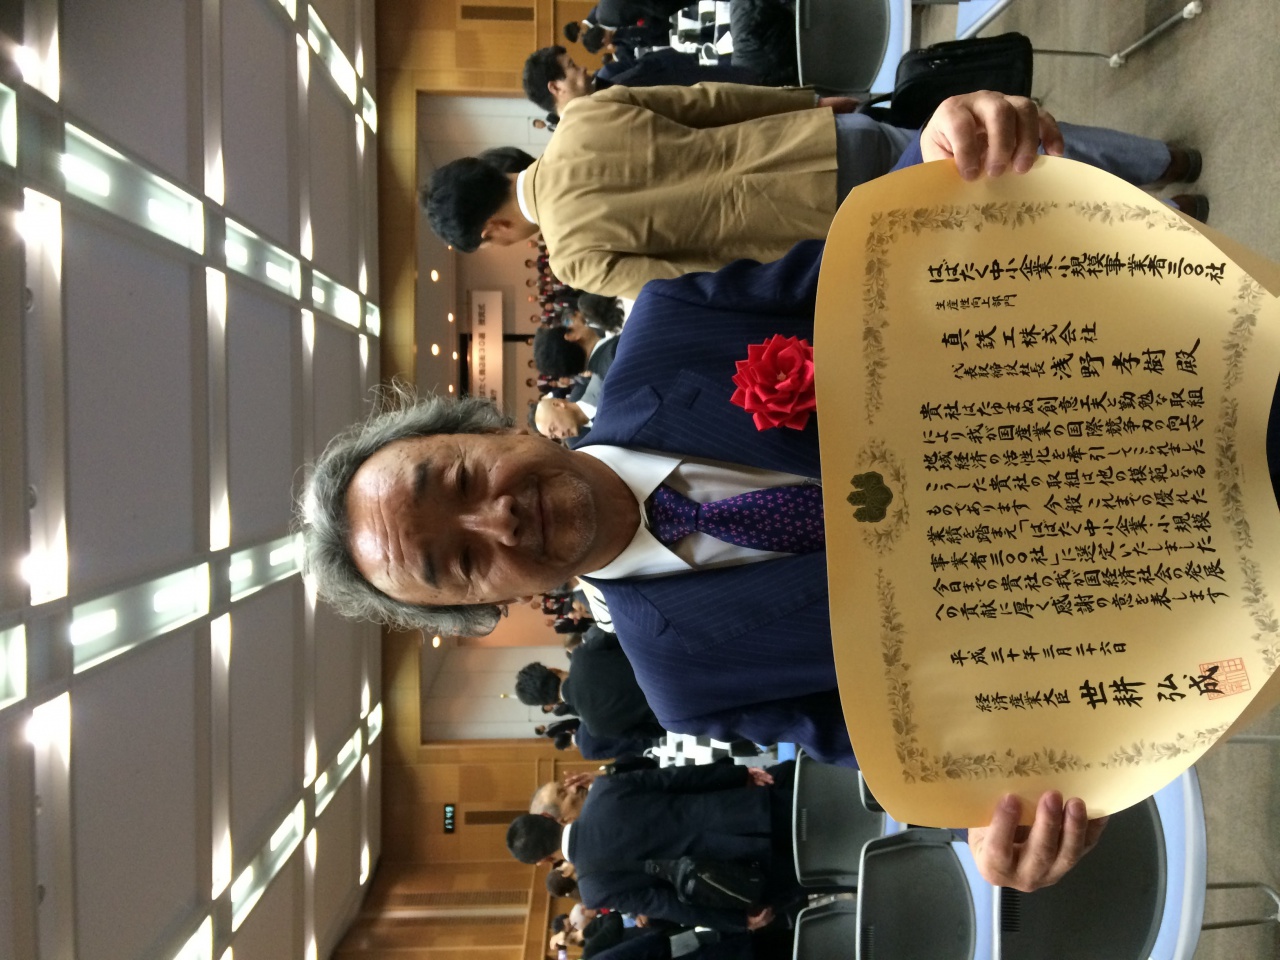 はばたく中小企業小規模事業者三〇〇社
生産性向上部門
真鉄工株式会社
代表取締役社長 浅野 孝樹 殿
貴社はたゆまぬ創意工夫と勤勉な取組
により我が国産業の国際競争力の向上や
地域経済の活性化を牽引してこられました
こうした貴社の取組は他の模範となる
ものであります 今般、これまでの優れた
業績を踏まえ「はばたく中小企業・小規模
事業者三〇〇社」に選定いたしました
今日までの貴社の、我が国経済社会の発展
への貢献に厚く感謝の意を表します
平成三十年三月二十六日
経済産業大臣
世耕 弘成